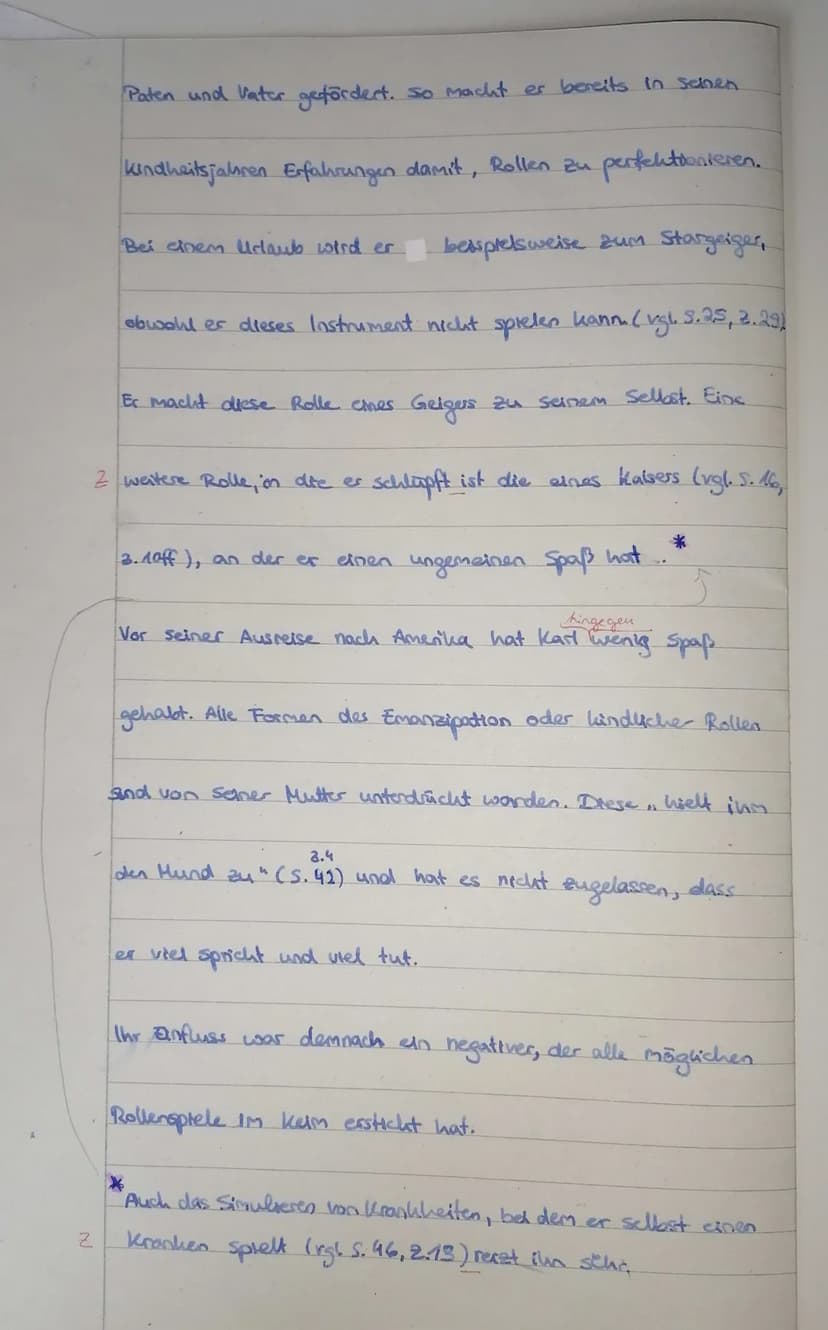 Paten und Vater gefördert. So macht er bereits in seinen
Kindheitsjahren Erfahrungen damit, Rollen zu perfektionieren.
Bei einem Urlaub wird er beispielsweise zum Stargeiger,
obwohl er dieses Instrument nicht spielen kann. (vgl. S.25, Z.29)
Er macht diese Rolle eines Geigers zu seinem Selbst. Eine
Z weitere Rolle, in die er schlüpft ist die eines Kaisers (vgl. S. 16,
Z.10ff), an der er einen ungemeinen Spaß hat .. *
hingegen
Vor seiner Ausreise nach Amerika hat Karl wenig Spaß
gehabt. Alle Formen des Emanzipation oder kindlicher Rollen
sind von seiner Mutter unterdrückt worden. Diese „hielt ihm
Z.4
den Mund zu" (S. 42) und hat es nicht zugelassen, dass
er viel spricht und viel tut.
Ihr Einfluss war demnach ein negativer, der alle möglichen
Rollenspiele im Keim erstickt hat.
* Auch das Simulieren von Krankheiten, bei dem er selbst einen
Z Kranken spielt (vgl. S. 46, Z.19) reizt ihn sehr.